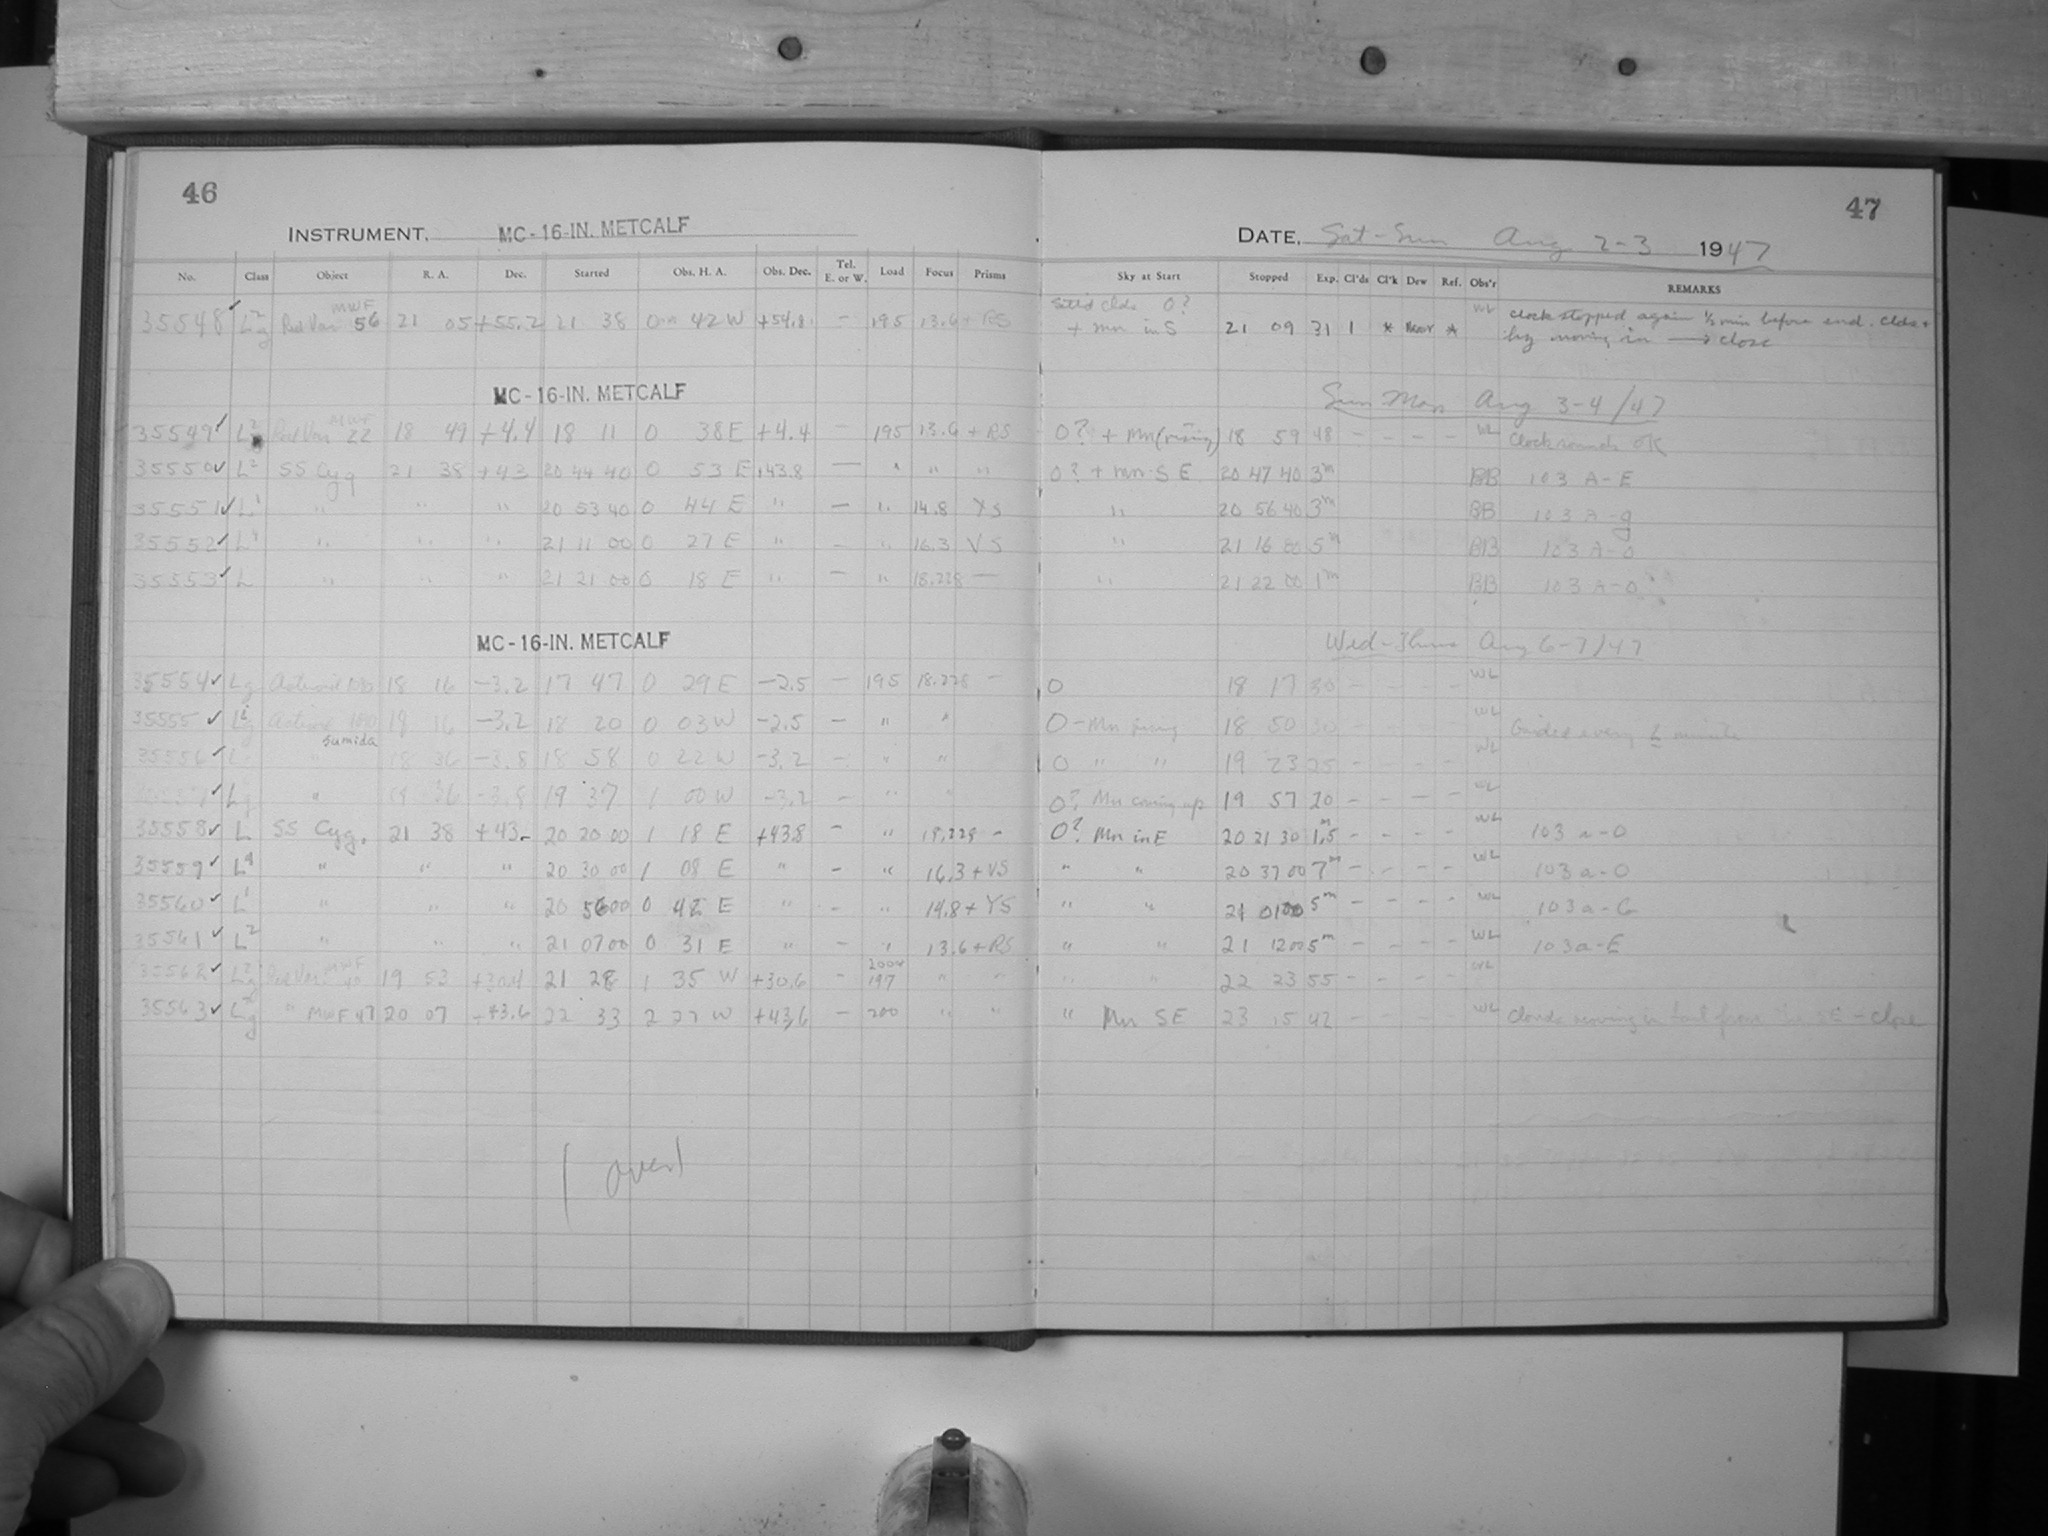 46
INSTRUMENT, MC-16-IN. METCALF
No. Class Object R. A. Dec. Started Obs. H. A. Obs. Dec. Tel. E. or W. Load Focus Prisms
MWF
35548 ✓ L2g Red Var 56 21 05 +55.2 21 38 0 42 W +54.8 – 195 13.6 + RS
MC-16-IN. METCALF
MWF
35549 ✓ L2 Red Var 22 18 49 +4.4 18 11 0 38 E +4.4 – 195 13.6 + RS
35550 ✓ L2 SS Cyg 21 38 +43 20 44 40 0 53 E +43.8 — " " "
35551 ✓ L1 " " " 20 53 40 0 44 E " – " 14.8 YS
35552 ✓ L4 " " " 21 11 00 0 27 E " – " 16.3 VS
35553 ✓ L " " " 21 21 00 0 18 E " – " 18.228 —
MC-16-IN. METCALF
35554 ✓ Lg Asteroid 1090 18 16 –3.2 17 47 0 29 E –2.5 – 195 18.228 –
35555 ✓ Lg Asteroid 1090 18 16 –3.2 18 20 0 03 W –2.5 – " "
Sumida
35556 ✓ L " 18 36 –3.8 18 58 0 22 W –3.2 – " "
Lg " 36 –3.8 19 37 1 00 W –3.2 – " "
35558 ✓ L SS Cyg. 21 38 +43– 20 20 00 1 18 E +43.8 – " 18.228 –
35559 ✓ L4 " " " 20 30 00 1 08 E " – " 16.3 + VS
35560 ✓ L1 " " " 20 56 00 0 42 E " – " 14.8 + YS
35561 ✓ L2 " " " 21 07 00 0 31 E " – " 13.6 + RS
MWF 200+
35562 ✓ L2g Red Var 40 19 53 +30.4 21 28 1 35 W +30.6 – 197 " "
35563 ✓ L2g " MWF 47 20 07 +43.6 22 33 2 27 W +43.6 – 200 " "
(over)
47
DATE, Sat-Sun Aug 2-3 1947
Sky at Start Stopped Exp. Cl'ds Cl'k Dew Ref. Obs'r REMARKS
Sctt'd clds 0? WL Clock stopped again ½ min before end. Clds +
+ Mn in S 21 09 31 1 * Near * moving in → close
Sun Mon Aug 3-4/47
0? + Mn (rising) 18 59 48 – – – – WL Clock sounds OK
0? + mn SE 20 47 40 3m BB 103 A-E
" 20 56 40 3m BB 103 A-g
" 21 16 00 5m BB 103 A-O
" 21 22 00 1m BB 103 A-O
Wed-Thurs Aug 6-7/47
0 18 17 30 – – – – WL
0 – Mn rising 18 50 30 – – – – WL Guided every ½ minute
0 " " 19 23 25 – – – – WL
0? Mn coming up 19 57 20 – – – – WL
0? Mn in E 20 21 30 1.5m – – – – WL 103 a-O
" " 20 37 00 7m – – – – WL 103 a-O
" " 21 01 00 5m – – – – WL 103a-G
" " 21 12 00 5m – – – – WL 103a-E
" " 22 23 55 – – – – WL
" Mn SE 23 15 42 – – – – WL Clouds moving in fast from the SE – Close